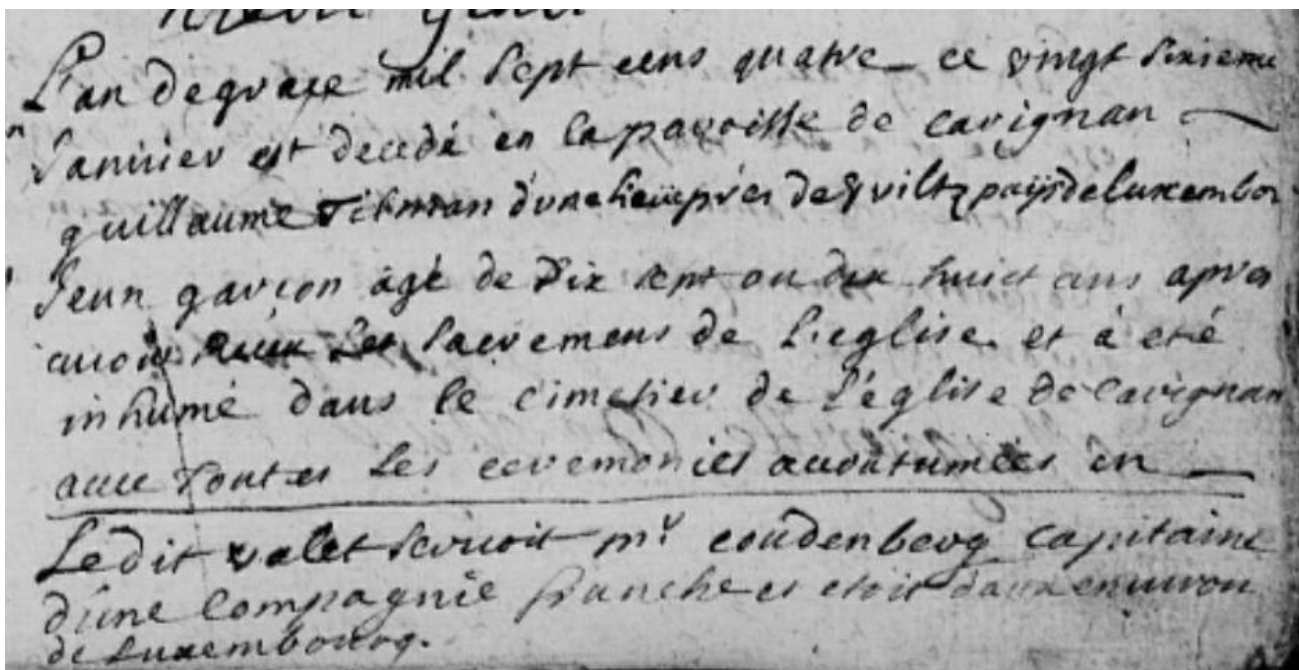 L'an de grace mil sept cens quatre ce vingt sixieme
Janvier est decedé en la paroisse de carignan
guillaume Tilman d'une près de viltz païs de luxembor
Jeun garçon agé de dix sept ou dix huict ans apres
auoir les sacremens de l'eglise et à eté
inhumé dans le cimetier de l'église de carignan
auec toutes les ceremonies accoutumées en
Ledit valet seruoit mr coudenberg capitaine
d'une compagnie franche et etoit enuiron
de Luxembourg.